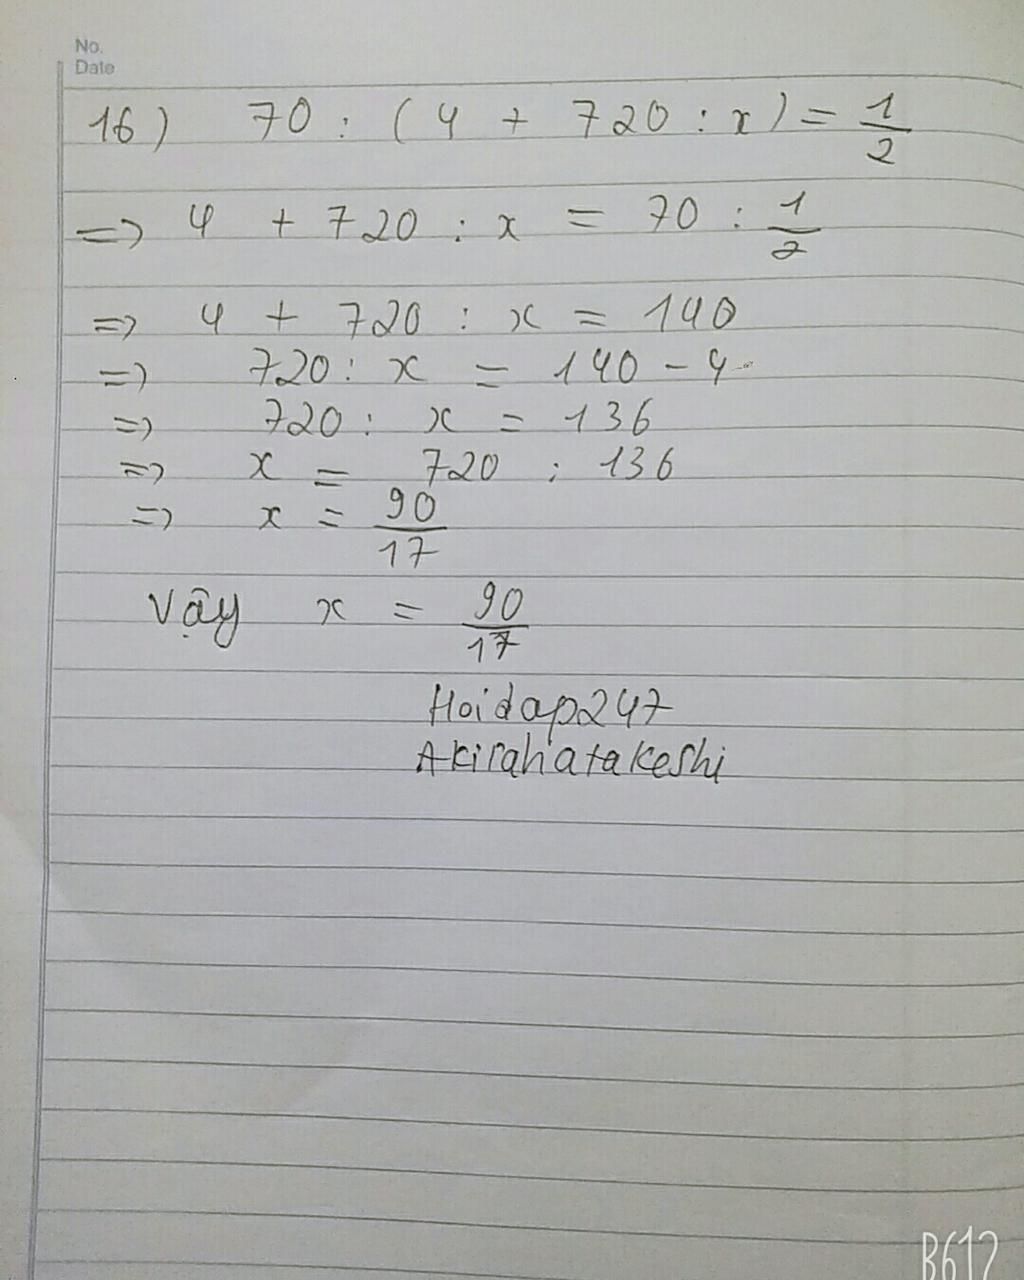 No.
Date
16) 70 : ( 4 + 720 : x ) = 1/2
=> 4 + 720 : x = 70 : 1/2
=> 4 + 720 : x = 140
=> 720 : x = 140 - 4
=> 720 : x = 136
=> x = 720 : 136
=> x = 90/17
Vậy x = 90/17
Hoidap247
Akirahatakeshi
B612